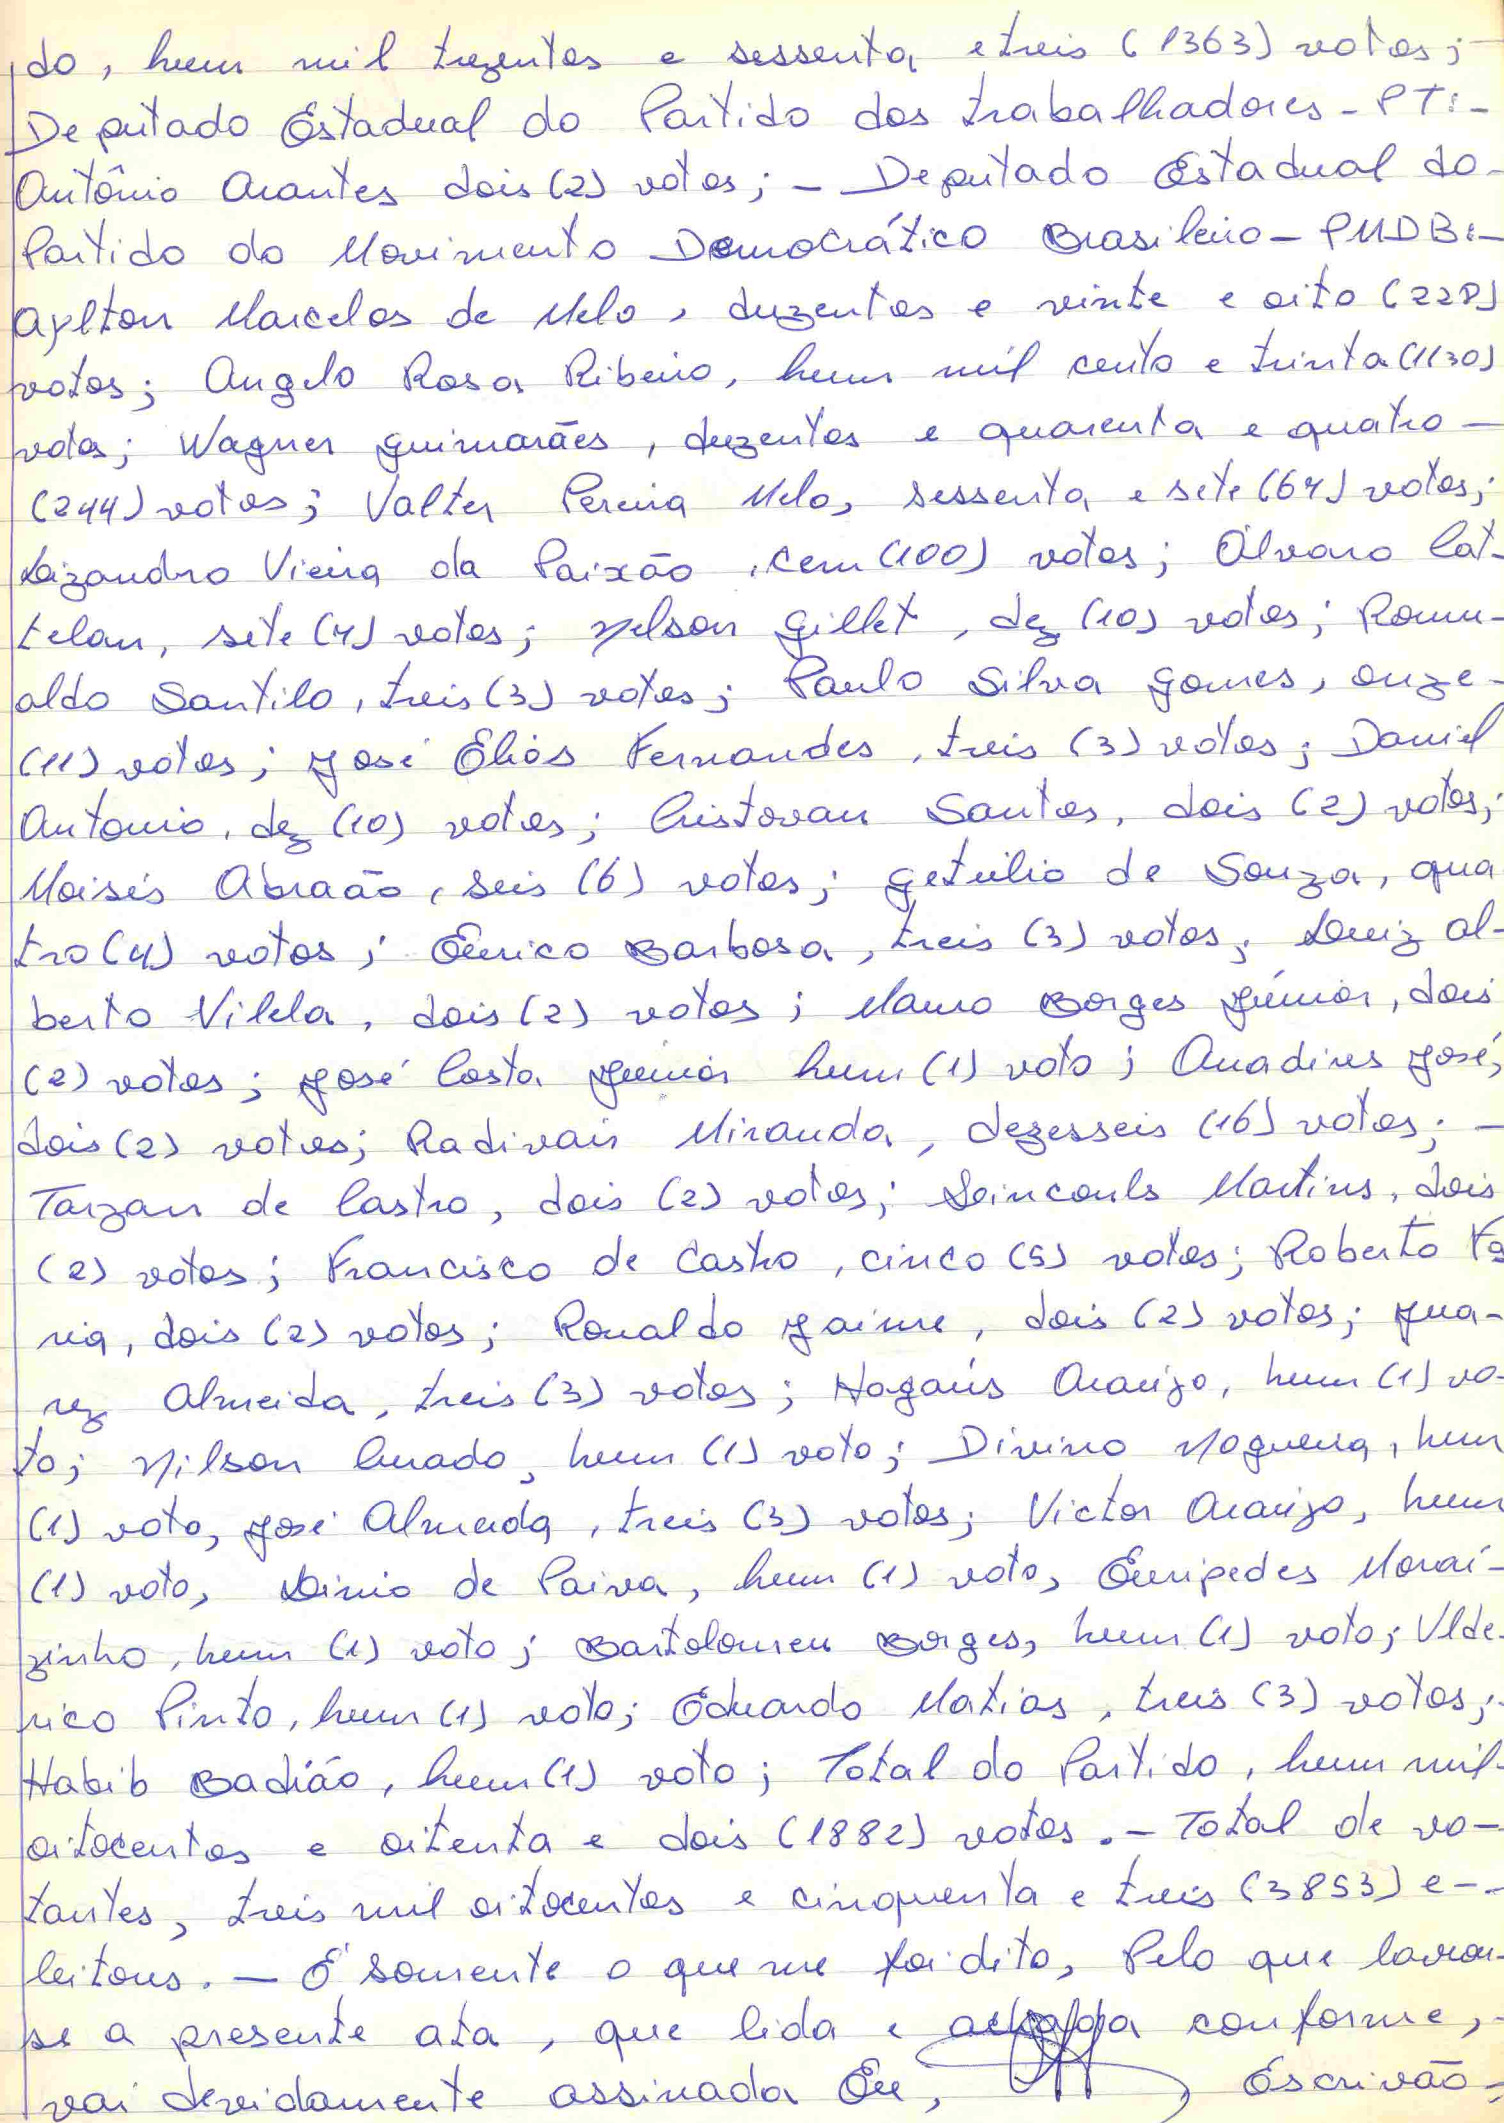 do, hum mil trezentos e sessenta e treis (1363) votos;
Deputado Estadual do Partido dos trabalhadores - PT: -
Antônio Arantes dois (2) votos; - Deputado Estadual do -
Partido do Movimento Democrático Brasileiro - PMDB: -
Aylton Marcelos de Melo, duzentos e vinte e oito (228)
votos; Angelo Rosa Ribeiro, hum mil cento e trinta (1130)
votos; Wagner Guimarães, duzentos e quarenta e quatro -
(244) votos; Valter Pereira Melo, sessenta e sete (67) votos;
Lizandro Vieira da Paixão, cem (100) votos; Álvaro Cat-
telan, sete (7) votos; Nelson Gillet, dez (10) votos; Romu-
aldo Santilo, treis (3) votos; Paulo Silva Gomes, onze -
(11) votos; José Elias Fernandes, treis (3) votos; Daniel
Antonio, dez (10) votos; Cristovan Santos, dois (2) votos;
Moisés Abraão, seis (6) votos; Getúlio de Souza, qua
tro (4) votos; Eurico Barbosa, treis (3) votos; Luiz Al-
berto Vilela, dois (2) votos; Mauro Borges Júnior, dois
(2) votos; José Costa Junior hum (1) voto; Anadires José,
dois (2) votos; Radivair Miranda, dezesseis (16) votos; -
Tarzan de Castro, dois (2) votos; Martins, dois
(2) votos; Francisco de Castro, cinco (5) votos; Roberto Fa
ria, dois (2) votos; Ronaldo Jaime, dois (2) votos; Jua-
rez Almeida, treis (3) votos; Hagaús Araújo, hum (1) vo-
to; Nilson Curado, hum (1) voto; Divino Nogueira, hum
(1) voto, José Almeida, treis (3) votos; Victor Araújo, hum
(1) voto, Linio de Paiva, hum (1) voto, Euripedes Moraí-
zinho, hum (1) voto; Bartolomeu Borges, hum (1) voto; Ulde-
rico Pinto, hum (1) voto; Eduardo Matias, treis (3) votos;
Habib Badião, hum (1) voto; Total do Partido, hum mil -
oitocentos e oitenta e dois (1882) votos. - Total de vo-
tantes, treis mil oitocentos e cinquenta e treis (3853) e -
leitores. - É somente o que me foi dito, Pelo que lavrou-
se a presente ata, que lida e achada conforme, -
vai devidamente assinada Eu, , Escrivão,